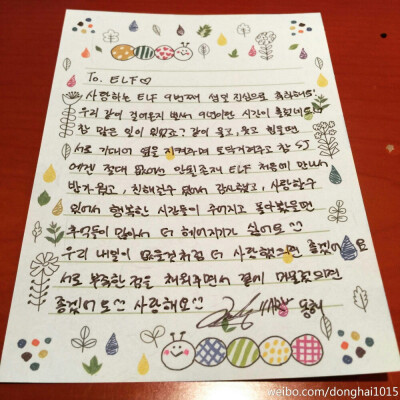 To. ELF♡
사랑하는 ELF 9번째 생일 진심으로 축하해요!
우리 같이 걸어온지 벌써 9년이란 시간이 흘렀네요
참 많은 일이 있었죠? 같이 울고, 웃고 힘들때
서로 기대며 옆을 지켜주며 토닥거려주고 참 SJ
에겐 절대 없어서 안될존재 ELF 처음에 만나서
반가웠고, 친해질수 있어서 감사했고, 사랑할수
있어서 행복한 시간들이 주어지고 돌아봤을땐
추억들이 많아서 더 헤어지기가 싫어요
우리 내일이 없을것처럼 더 사랑했으면 좋겠어요
서로 부족한 점은 채워주면서 곁에 머물렀으면
좋겠어요 사랑해요
동해
weibo.com/donghai1015